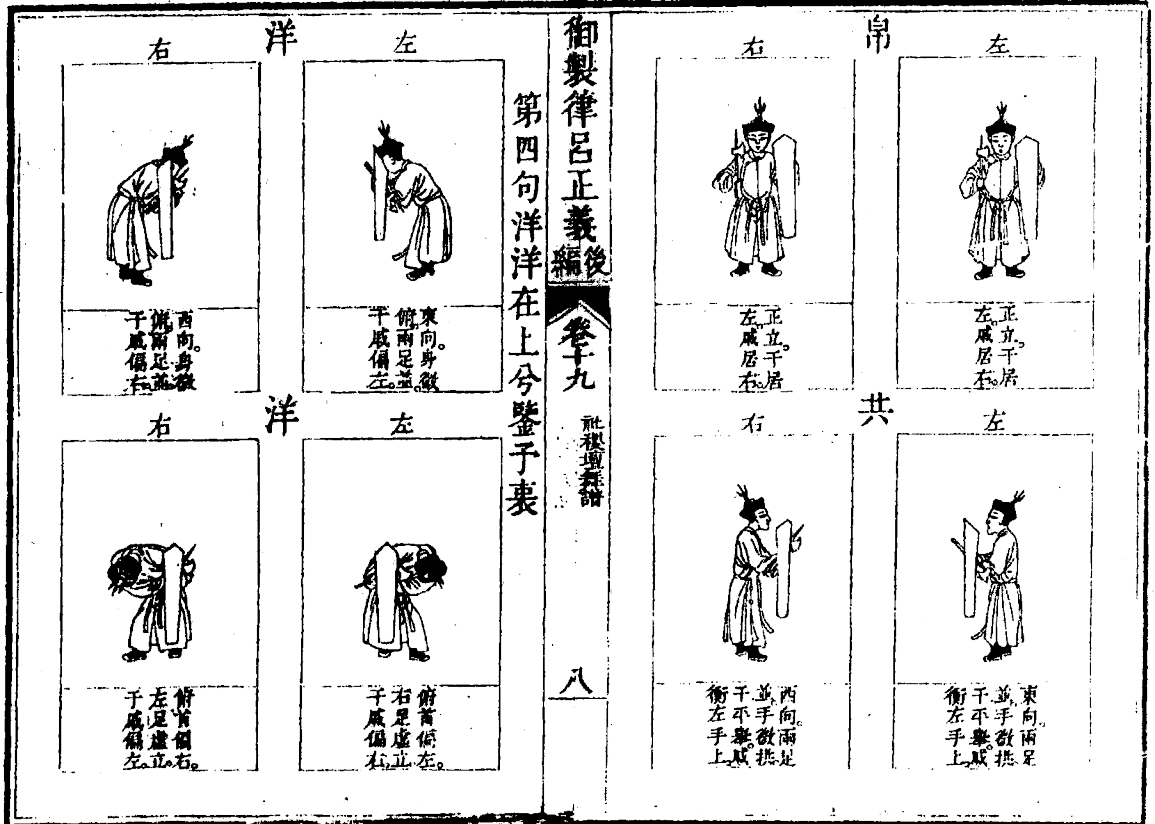 帛
左
正立。干居
左。戚居右。
右
正立。干居
左。戚居右。
共
左
東向。兩足
並。手微拱。
干平舉。戚
衡左手上。
右
西向。兩足
並。手微拱。
干平舉。戚
衡左手上。
御製律呂正義後編
卷十九
社稷壇舞譜
八
第四句洋洋在上兮鑒予衷
洋
左
東向。身微
俯。兩足並。
干戚偏左。
右
西向。身微
俯。兩足並。
干戚偏右。
洋
左
俯首偏左。
右足虛立。
干戚偏右。
右
俯首偏右。
左足虛立。
干戚偏左。